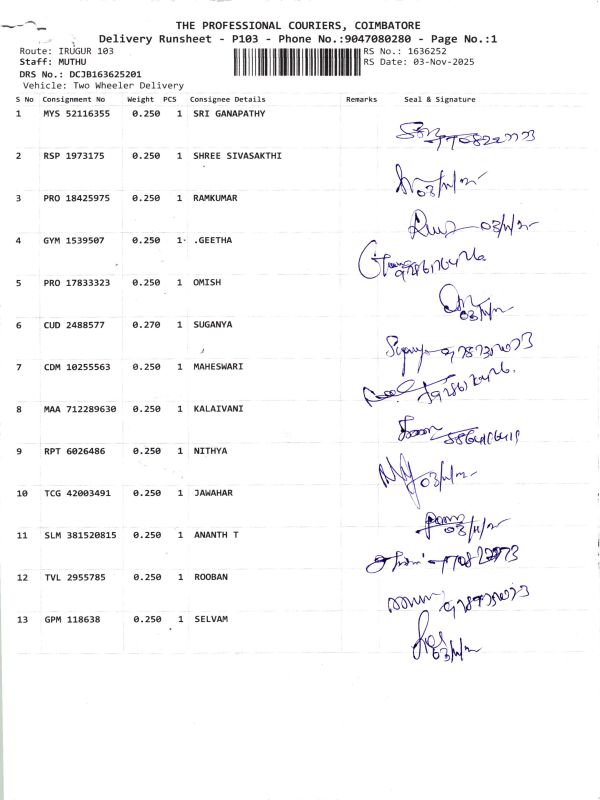 THE PROFESSIONAL COURIERS, COIMBATORE
Delivery Runsheet - P103 - Phone No.:9047080280 - Page No.:1
Route: IRUGUR 103
RS No.: 1636252
Staff: MUTHU
RS Date: 03-Nov-2025
DRS No.: DCJB163625201
Vehicle: Two Wheeler Delivery
S No Consignment No Weight PCS Consignee Details Remarks Seal & Signature
1 MYS 52116355 0.250 1 SRI GANAPATHY
2 RSP 1973175 0.250 1 SHREE SIVASAKTHI
03/11/25
3 PRO 18425975 0.250 1 RAMKUMAR
03/11/25
4 GYM 1539507 0.250 1 .GEETHA
5 PRO 17833323 0.250 1 OMISH
03/11/25
6 CUD 2488577 0.270 1 SUGANYA
7 CDM 10255563 0.250 1 MAHESWARI
8 MAA 712289630 0.250 1 KALAIVANI
9 RPT 6026486 0.250 1 NITHYA
03/11/25
10 TCG 42003491 0.250 1 JAWAHAR
03/11/25
11 SLM 381520815 0.250 1 ANANTH T
12 TVL 2955785 0.250 1 ROOBAN
13 GPM 118638 0.250 1 SELVAM
03/11/25